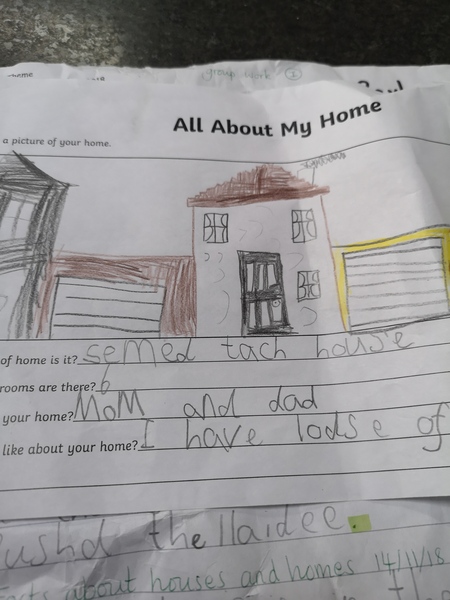 group work 2
All About My Home
a picture of your home.
of home is it? semed tach house
rooms are there? 6
your home? MoM and dad
like about your home? I have lodse of
ushd the llaidee.
about houses and homes 14/11/18